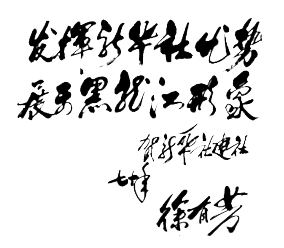 发挥新华社优势
展示黑龙江形象
贺新华社建社
七十年
徐有芳